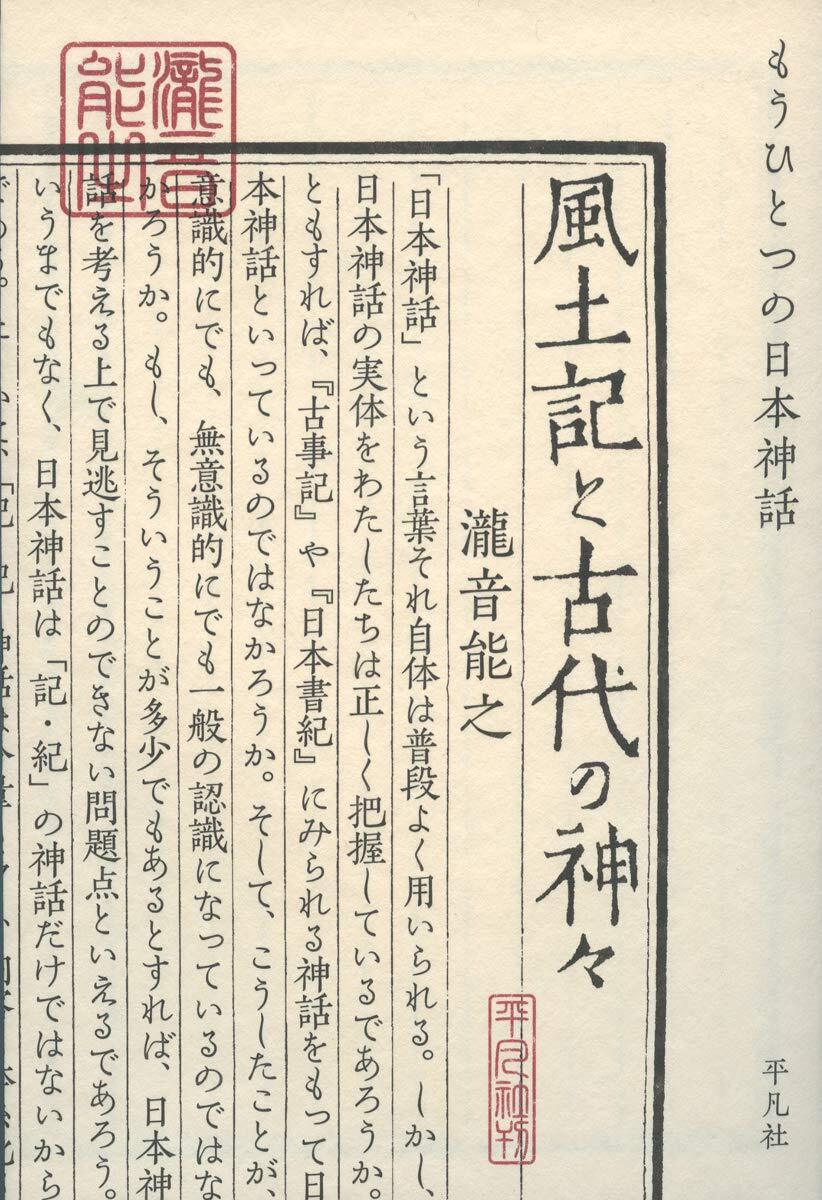 もうひとつの日本神話
風土記と古代の神々
瀧音能之
「日本神話」という言葉それ自体は普段よく用いられる。しかし、
日本神話の実体をわたしたちは正しく把握しているであろうか。
ともすれば、『古事記』や『日本書紀』にみられる神話をもって日
本神話といっているのではなかろうか。そして、こうしたことが、
意識的にでも、無意識的にでも一般の認識になっているのではな
かろうか。もし、そういうことが多少でもあるとすれば、日本神
話を考える上で見逃すことのできない問題点といえるであろう。
いうまでもなく、日本神話は「記・紀」の神話だけではないから
瀧音
能之
平凡社刊
平凡社